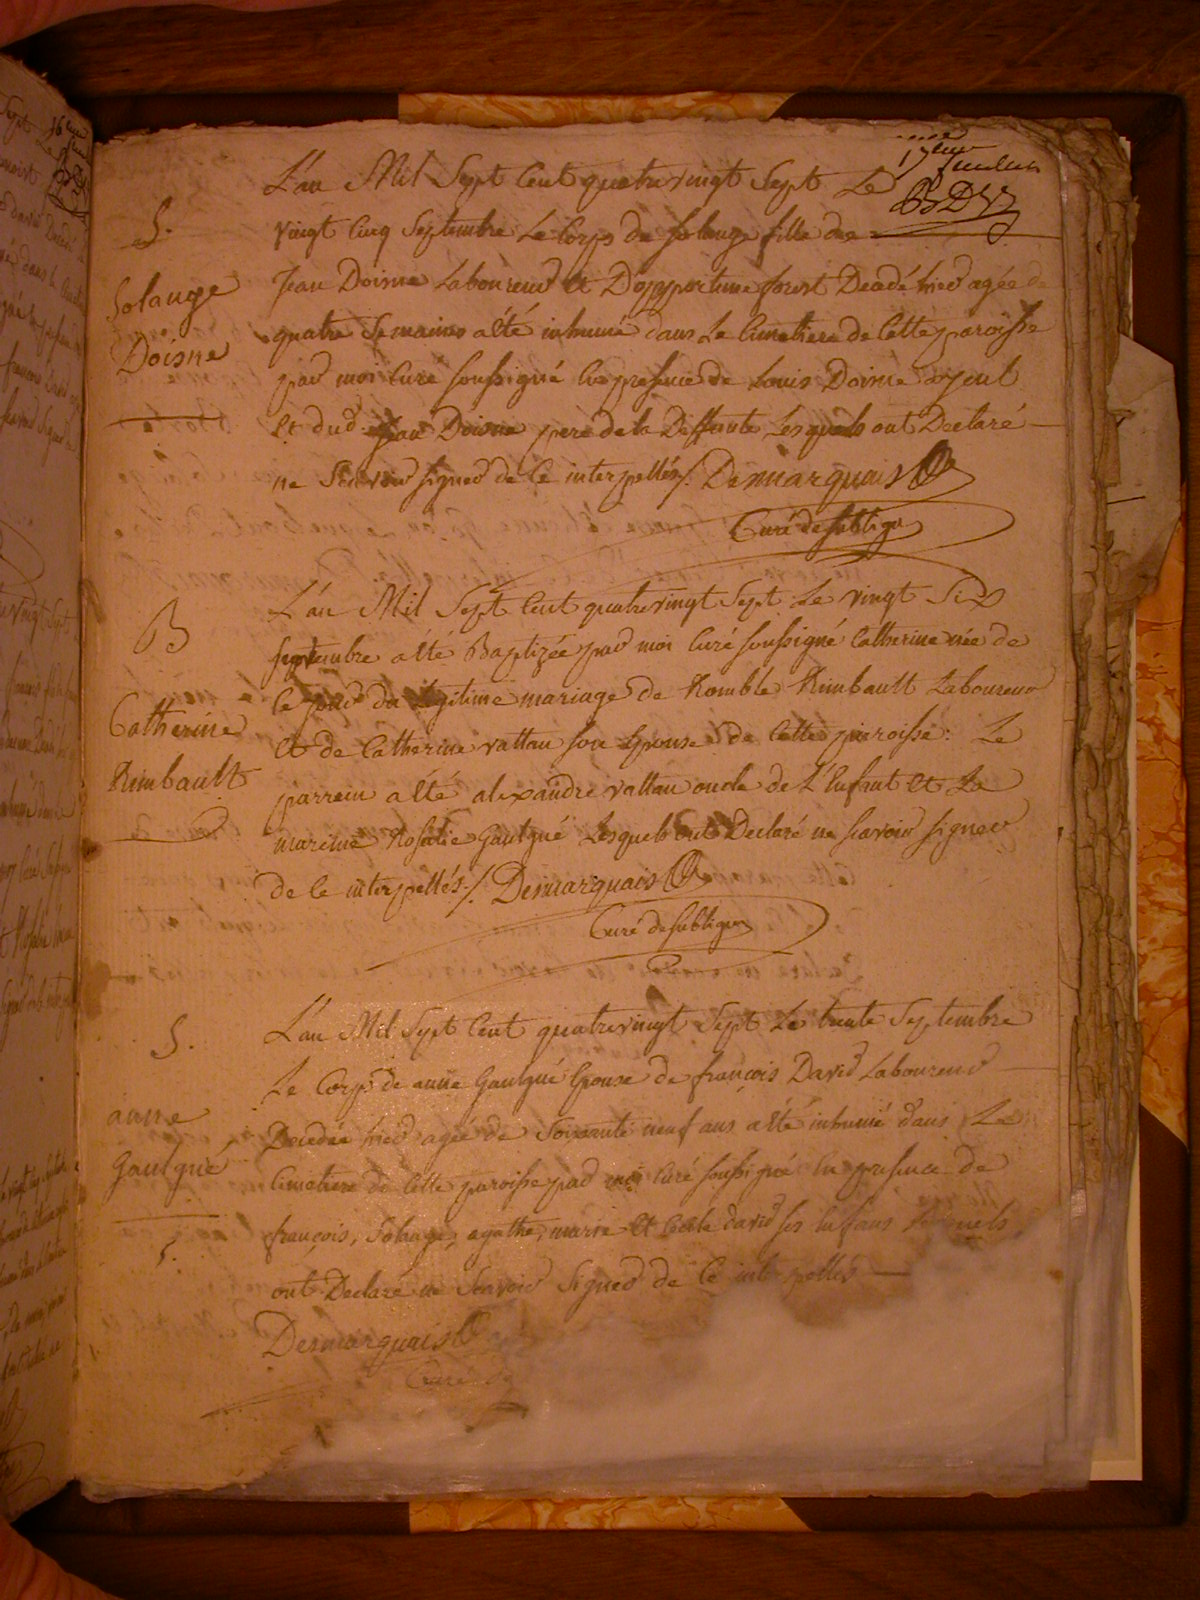 17eme
feuillet
L'an Mil Sept Cent quatrevingt Sept Le
S.
vingt Cinq Septembre Le Corps de Solange fille de
Solange
Doisne
Jean Doisne Laboureur et D'opportune forest Decedé hier agée de
quatre Semaines a été inhumé dans Le Cimetiere de Cette paroisse
par moi Curé soussigné En presence de Louis Doisne ayeul
Et dud. Jean Doisne pere de la Deffunte Lesquels ont Declaré
ne Scavoir signer de Ce interpellés /. Desmarquais
Curé de Subligny
L'an Mil Sept Cent quatrevingt Sept Le vingt Six
B
Septembre a été Baptizée par moi Curé soussigné Catherine née de
Catherine
Rimbault
ce jour du Legitime mariage de Romble Rimbault Laboureur
Et de Catherine vattan son Epouse de Cette paroisse. Le
parrein a été alexandre vattan oncle de L'Enfant et La
mareine Rosalie Gaulgué Lesquels ont Declaré ne scavoir signer
de Ce interpellés /. Desmarquais
Curé de Subligny
L'an Mil Sept Cent quatrevingt Sept Le trente Septembre
S.
Le Corps de anne Gaulgué Epouse de françois David Laboureur
anne
Gaulgué
Decedée hier agée de Soixante neuf ans a été inhumé dans Le
Cimetiere de Cette paroisse par moi Curé soussigné En presence de
françois, Solange, agathe, marie et Cecile david ses Enfans Lesquels
ont Declaré ne Scavoir Signer de Ce interpellés
Desmarquais
Curé de